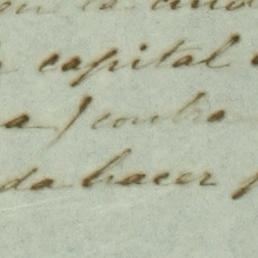 en la
capital
a y contra
da hacer